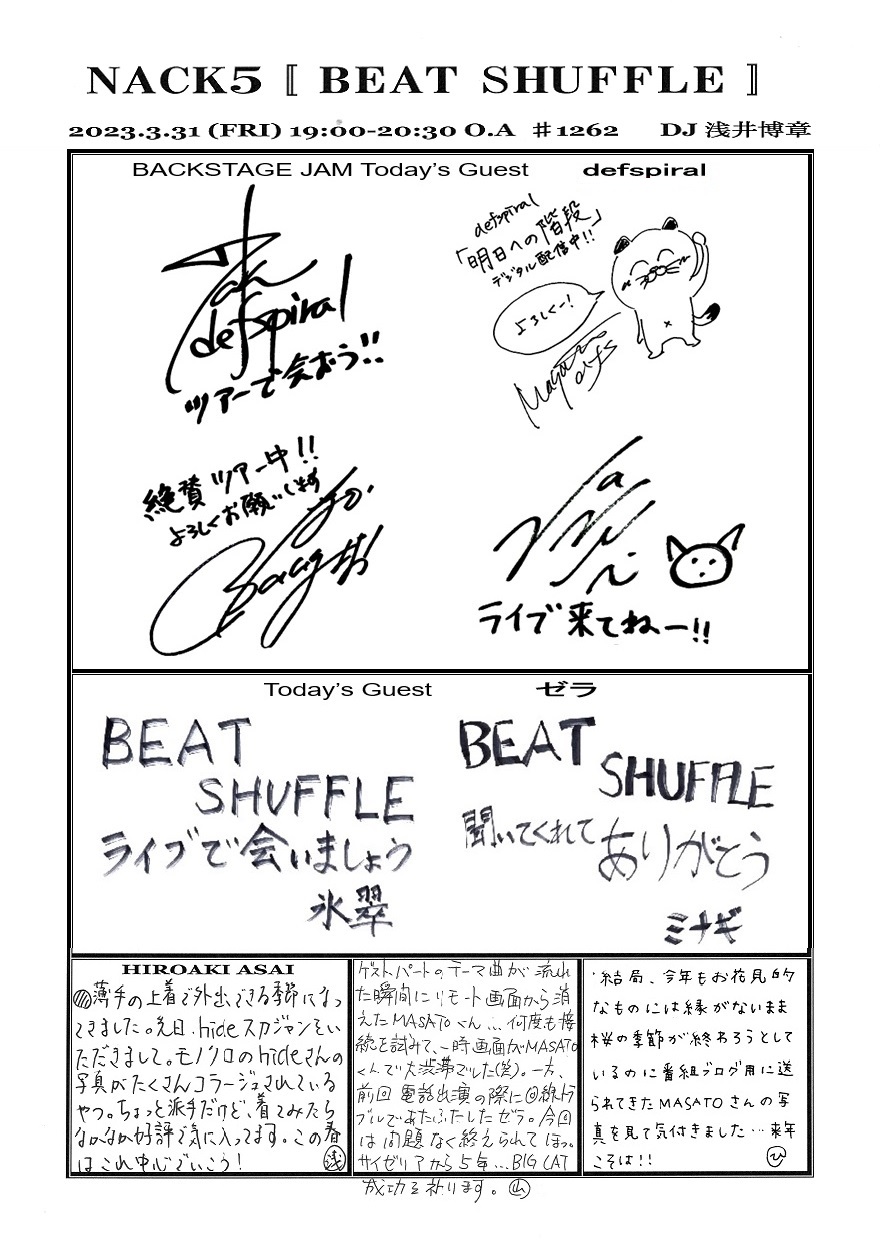 NACK5 〚 BEAT SHUFFLE 〛
2023.3.31 (FRI) 19:00-20:30 O.A #1262 DJ 浅井博章
BACKSTAGE JAM Today's Guest defspiral
defspiral
ツアーで会おう!!
defspiral
「明日への階段」
デジタル配信中!!
よろしくー!
Masato
defs
絶賛ツアー中!!
よろしくお願いします
ライブ来てねー!!
Today's Guest ゼラ
BEAT
SHUFFLE
ライブで会いましょう
氷翠
BEAT
SHUFFLE
聞いてくれて
ありがとう
ミナギ
HIROAKI ASAI
薄手の上着で外出できる季節になっ
てきました。先日、hideスカジャンをい
ただきまして。モノクロのhideさんの
写真がたくさんコラージュされている
やつ。ちょっと派手だけど、着てみたら
なかなか好評で気に入ってます。この春
はこれ中心でいこう! 浅
ゲストパートのテーマ曲が流れ
た瞬間にリモート画面から消
えたMASATOくん…何度も接
続を試みて、一時画面がMASATO
くんで大渋滞でした(笑)。一方、
前回電話出演の際に回線トラ
ブルであたふたしたゼラ。今回
は問題なく終えられてほっ。
サイゼリアから5年…BIG CAT
成功を祈ります。 山
・結局、今年もお花見的
なものには縁がないまま
桜の季節が終わろうとして
いるのに番組ブログ用に送
られてきたMASATOさんの写
真を見て気付きました…来年
こそは!! ひ